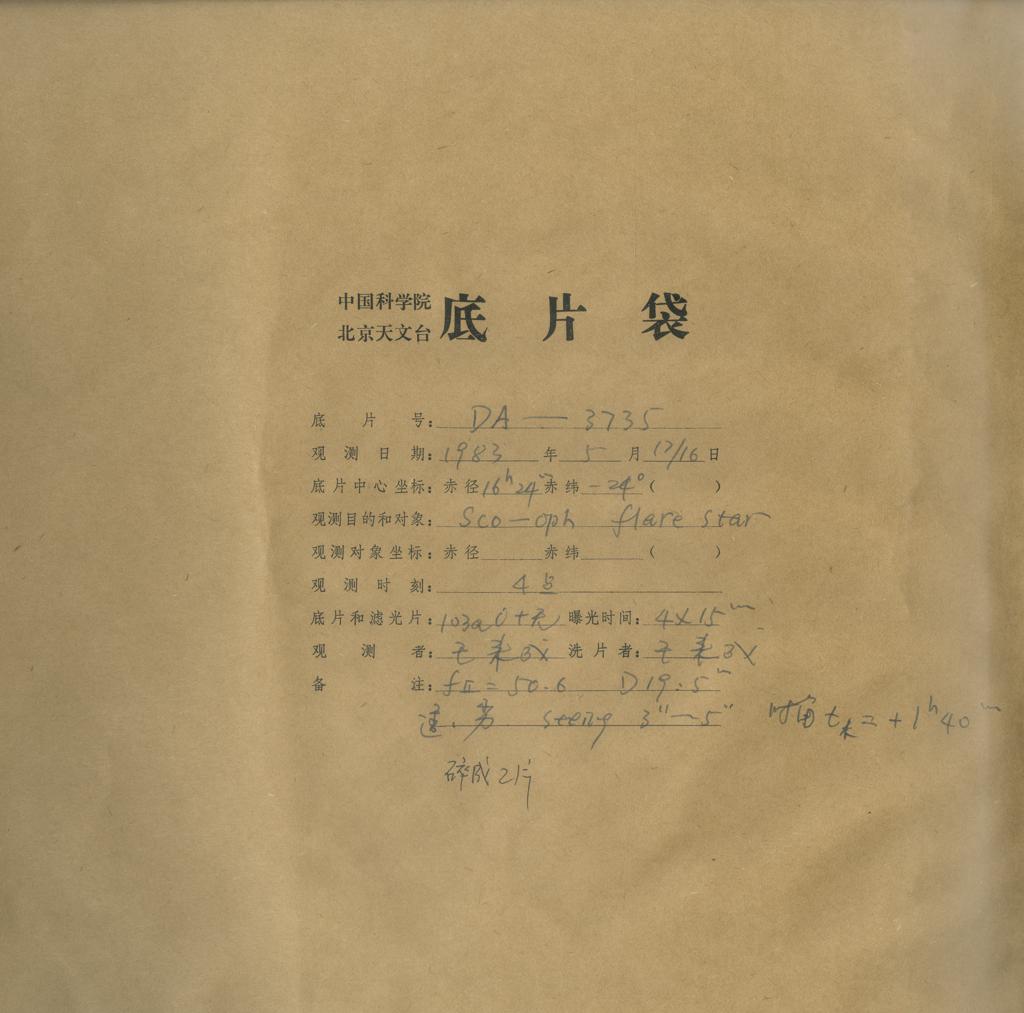 中国科学院
北京天文台
底片袋
底片号: DA — 3735
观测日期: 1983 年 5 月 /16 日
底片中心坐标: 赤径 16h 24m 赤纬 -24° ( )
观测目的和对象: Sco — oph flare star
观测对象坐标: 赤径 赤纬 ( )
观测时刻: 4点
底片和滤光片: 103aO+无 曝光时间: 4×15m
观测者: 洗片者:
备注: fⅡ=50.6 D19.5m
seeing 3"—5" 时角 t末=+1h40m
碎成2片